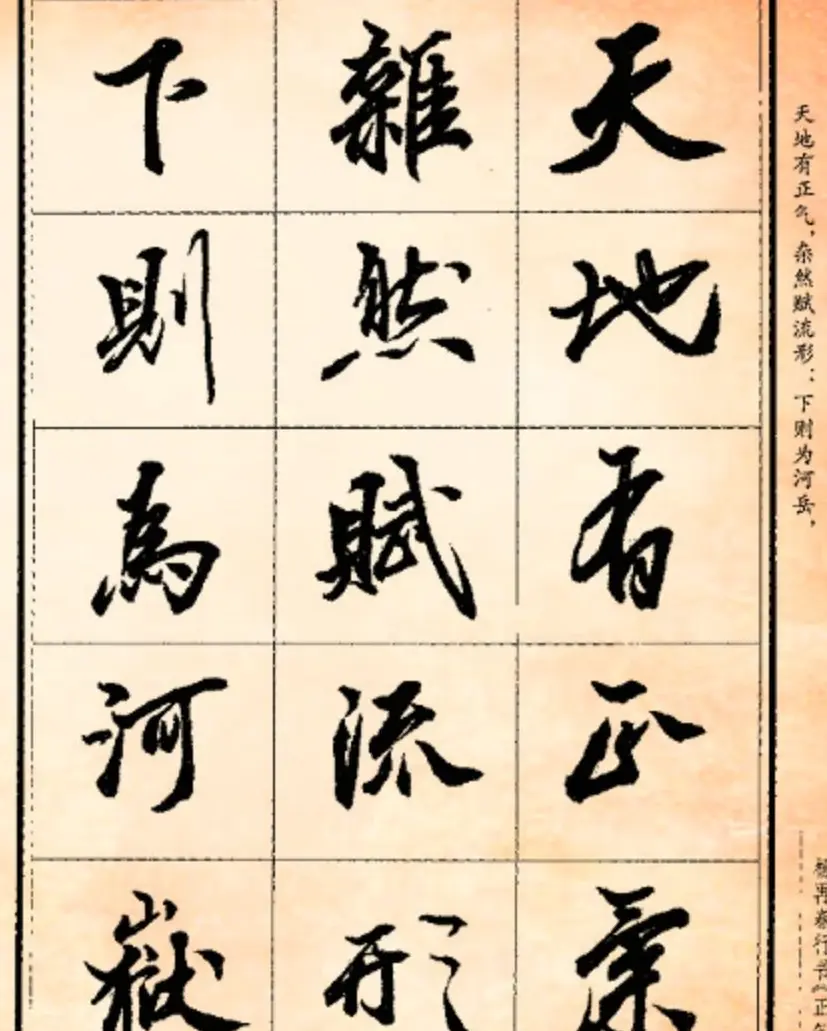 天地有正气，杂然赋流形：下则为河岳，
再春行书《正
天地有正氣
雜然賦流形
下則為河嶽